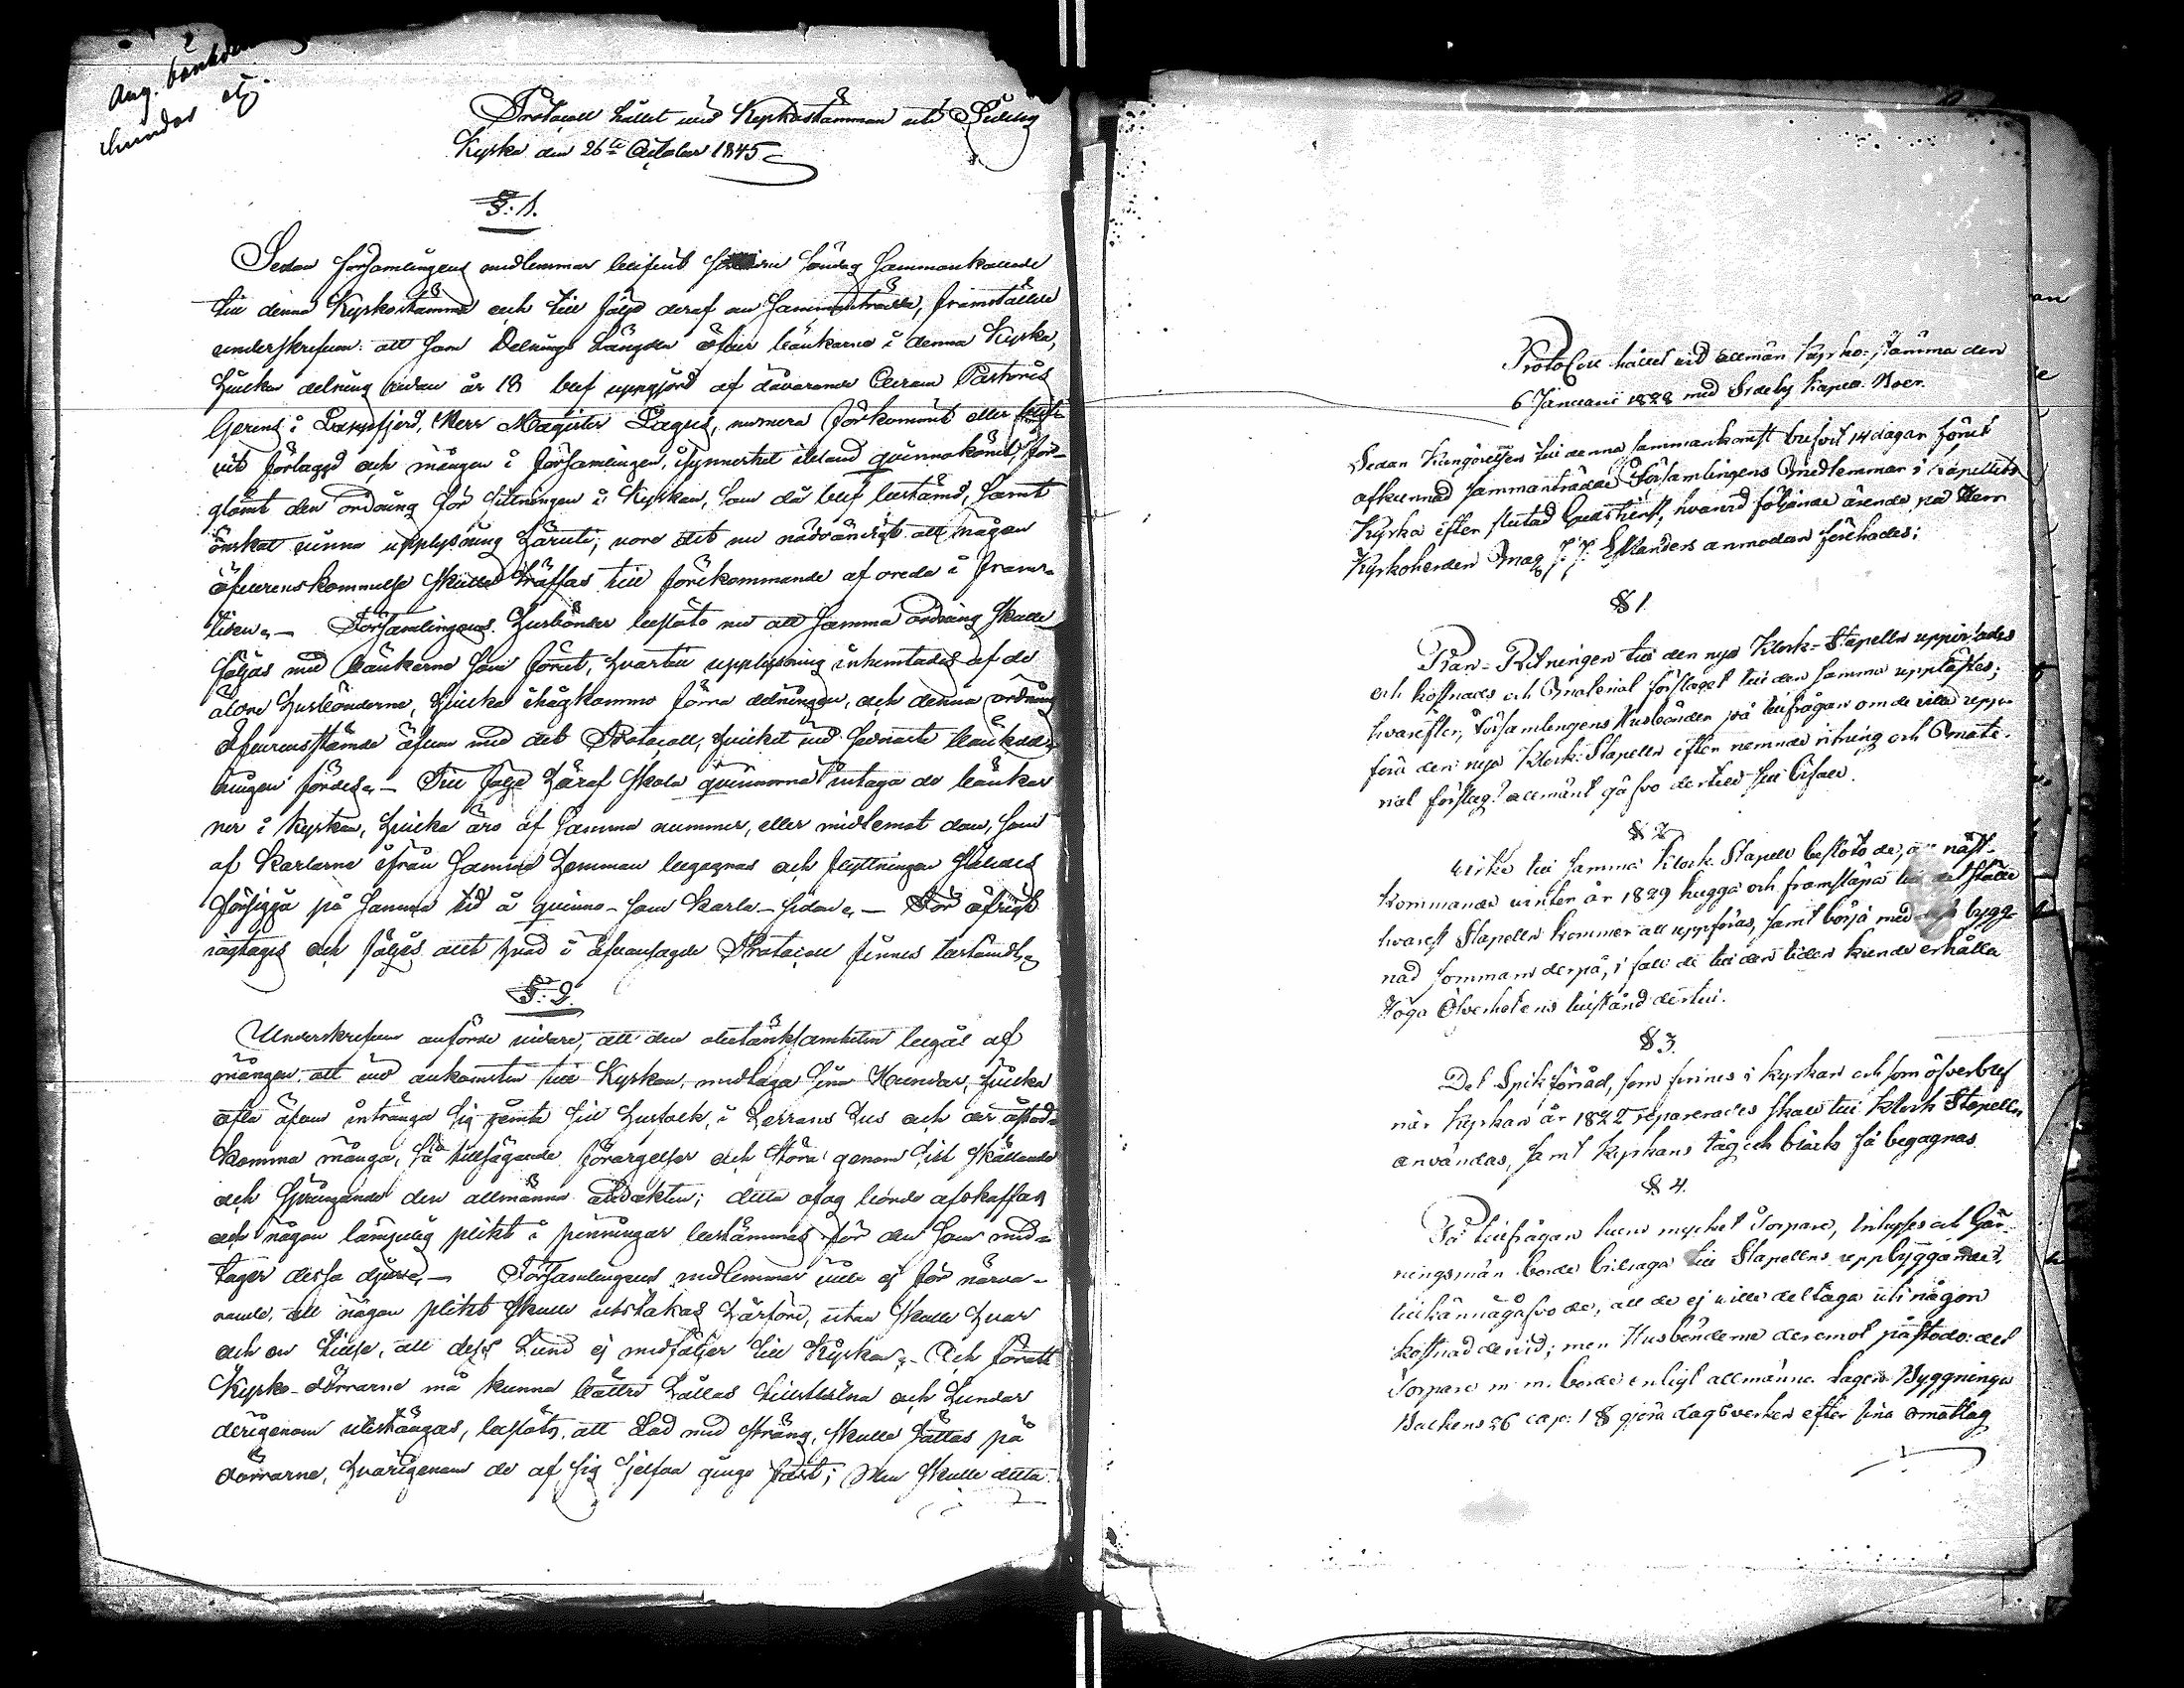 Ang. bänkdeln
hundar etz.
Protocoll hållet vid Kyrkostämman uti Sideby
Kyrka den 26te October 1845
§. 1.
Sedan församlingens medlemmar blifvit söndag sammankallade
till denna Kyrkostämma och till följd deraf nu sammanträdde, framställde
underskrifven: att som Delnings Längden öfver bänkarne i denna Kyrka,
hvilken delning redan år 18 blef uppgjord af dåvarande Curam Pastoris
Gerens i Lappfjerd, Herr Magister Lagus, numera förkommit eller blif-
vit förlaggd och mången i församlingen, i synnerhet ibland quinnokönet för-
glömt den ordning för sittningen i Kyrkan, som då blef bestämd, samt
önskat vinna upplysning häruti; vore det nu nödvändigt att någon
öfverenskommelse skulle träffas till förekommande af oreda i fram-
tiden. — Församlingens husbönder beslöto nu att samma ordning skulle
följas med bänkerne som förut, hvartill upplysning inhemtades af de
äldre husbönderne, hvilka ihågkommo förra delningen, och denna ordning
öfverensstämde äfven med det Protocoll, hvilket vid bänkdel-
ningen fördes. — Till följe häraf skola quinnorna intaga de bänkar
ner i Kyrkan, hvilka äro af samma nummer, eller midlemot dem, som
af karlarne ifrån samma hemman begagnas och flyttningen således
försiggå på samma tid å quinno- som karla-sidan. — För öfrigt
iagtages och följes allt hvad i ofvansagde Protocoll finnes bestämdt.
§. 2.
Underskrifven anförde vidare, att den obetänksamheten begås af
mången, att vid ankomsten till Kyrkan, medtaga sina Hundar, hvilka
ofta äfven intränga sig jemte sitt husfolk, i Herrans hus och der åstad-
komma många, så tillsägande förargelser och störa genom sitt skällande
och springande den allmänna andakten; detta ofog borde afskaffas
och någon lämpelig plikt i penningar bestämmas för den som med-
tager dessa djur. — Församlingens medlemmar ville ej för närva-
rande, att någon plikt skulle utstakas härföre, utan skulle hvar
och en tillse, att dess hund ej medföljer till Kyrkan. — Och föratt
Kyrko-dörrarne må kunna bättre hållas tillslutna och hundar
derigenom utestängas, beslöts, att Lod med sträng, skulle sättas på
dörrarne, hvarigenom de af sig sjelfva ginge fast; Men skulle detta
Protocoll hållet vid allmän Kyrko-stämma den
6 Januarii 1828 med Sideby Capell Boer.
Sedan Kungörelsen till denna sammankomst blifvit 14 dagar förut
afkunnad sammanträdde Församlingens Medlemmar i Capellets
Kyrka efter slutad Gudstjenst, hvarvid följande ärende på Herr
Kyrkoherden Mag. J. J. Estlanders anmodan förehades:
§ 1.
Plan-Ritningen till den nya Klock-Stapeln uppvistades
och kostnads och Material förslaget till den samma upplästes;
hvarefter, Församlingens Husbönder på tillfrågan om de ville upp-
föra den nya Klock-Stapeln efter nemnde ritning och Mate-
rial förslag? allmänt gåfvo dertill sitt bifall.
§ 2.
Virke till samma Klock Stapell beslöto de, att näst-
kommande vinter år 1829 hugga och framsläpa till det ställe
hvarest Stapeln kommer att uppföras, samt börja med bygg-
nad sommarn derpå, i fall de till den tiden kunde erhålla
Höga Öfverhetens tillstånd dertill.
§ 3.
Det Spikförråd, som finnes i kyrkan och som öfverblef
när Kyrkan år 1822 reparerades skall till Klock Stapeln
användas, samt Kyrkans tåg och block få begagnas
§ 4.
På tillfrågan huru myckel Torpare, Inhyses och Gär-
ningsmän borde bidraga till Stapellens uppbyggande?
tillkännagåfvo de, att de ej ville deltaga uti någon
kostnad dervid; men Husbönderne deremot påstodo: det
Torpare m m. borde enligt allmänna Lagens Byggninga
Balkens 26 cap: 1 § gjöra dagsverken efter sina matlag